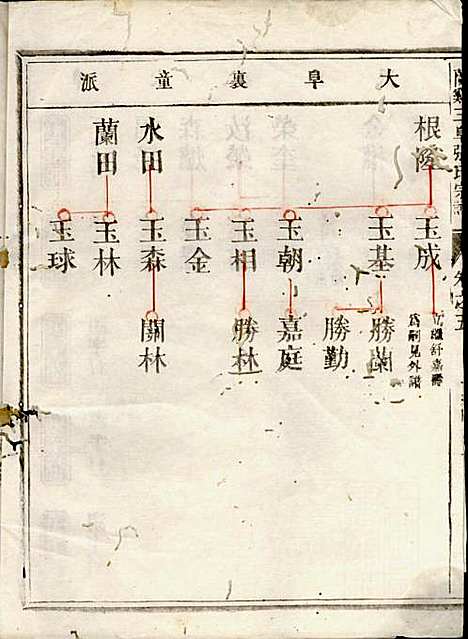 大阜裏童派
根
水田
蘭田
玉成
玉基
玉朝
玉相
玉金
玉森
玉林
玉球
舒嘉
爲嗣見外譜
勝蘭
勝勤
嘉庭
勝林
關林
張氏宗譜
卷之五